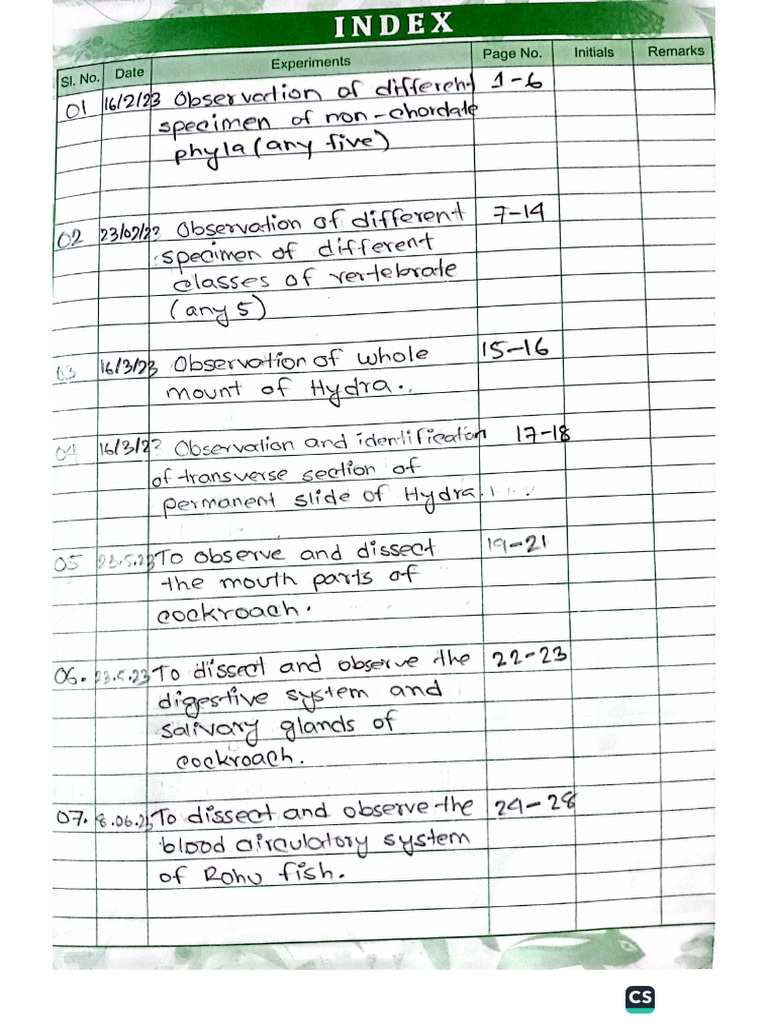 INDEX
Sl. No. Date Experiments Page No. Initials Remarks
01 16/2/23 Observation of different 1-6
specimen of non-chordate
phyla (any five)
02 23/02/23 Observation of different 7-14
specimen of different
classes of vertebrate
(any 5)
03 16/3/23 Observation of whole 15-16
mount of Hydra.
04 16/3/23 Observation and identification 17-18
of transverse section of
permanent slide of Hydra.
05 23.5.23 To observe and dissect 19-21
the mouth parts of
cockroach.
06. 23.5.23 To dissect and observe the 22-23
digestive system and
salivary glands of
cockroach.
07. 8.06.23 To dissect and observe the 24-28
blood circulatory system
of Rohu fish.
CS